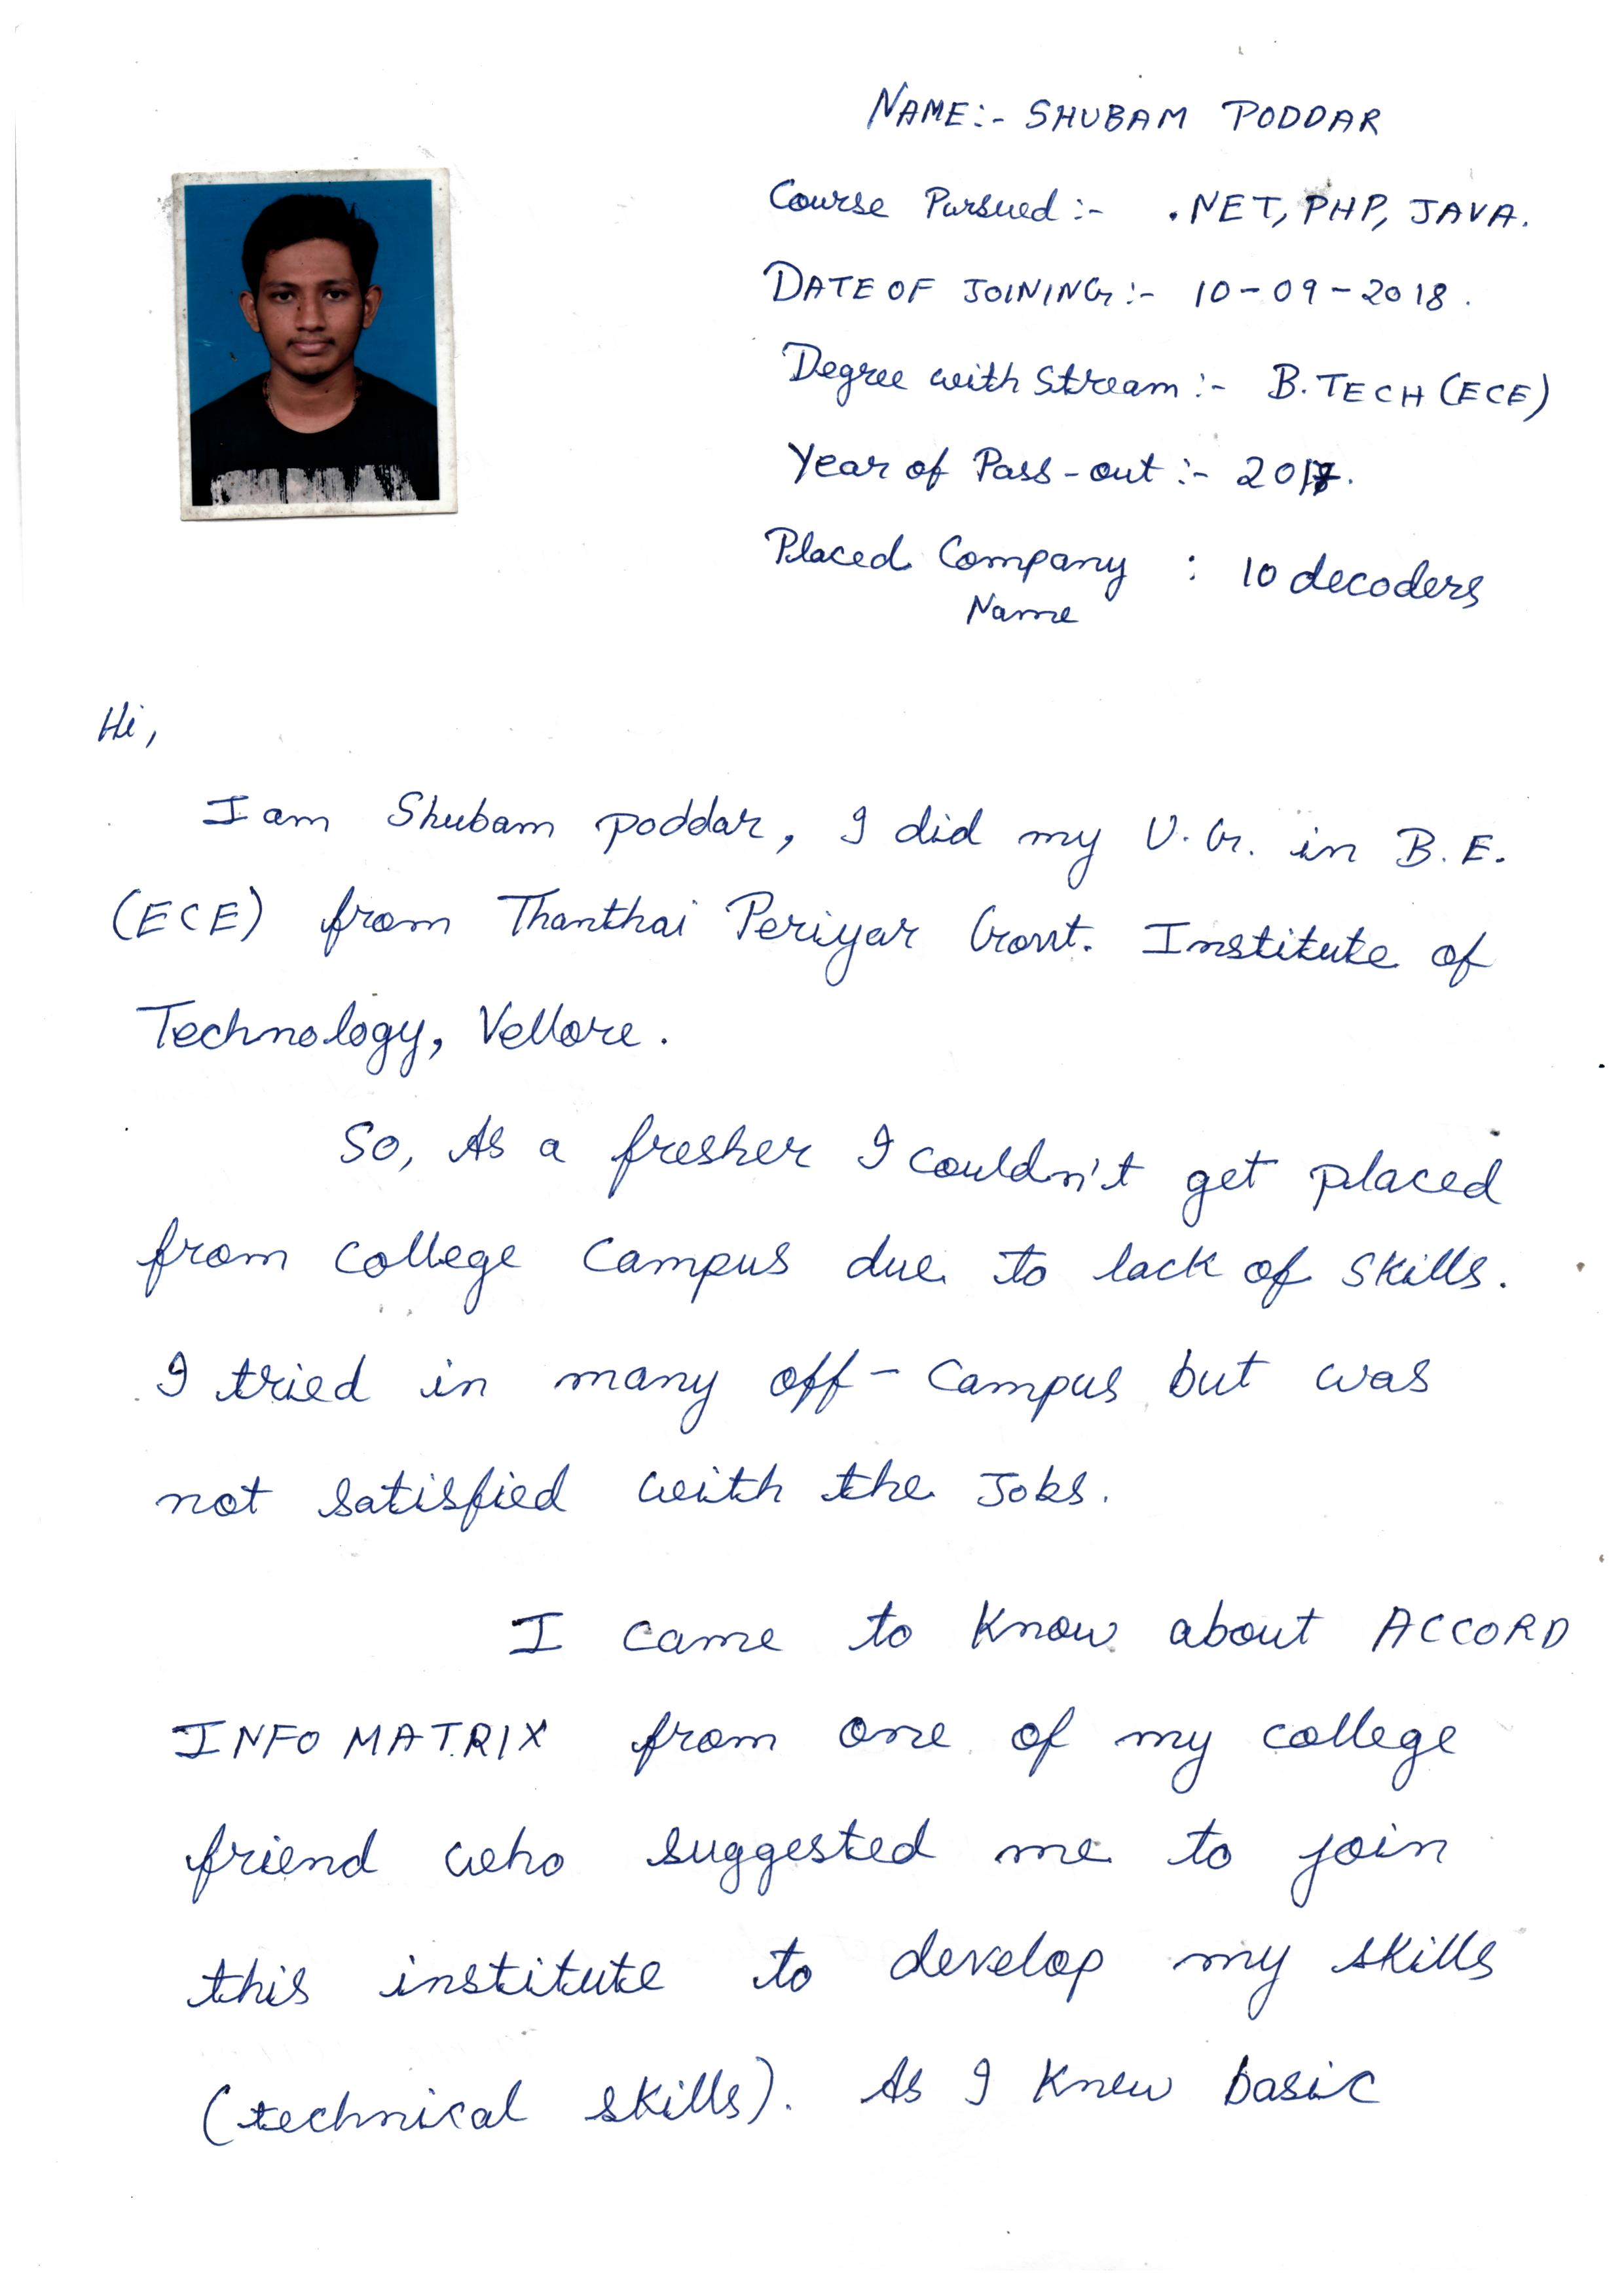 NAME:- SHUBAM PODDAR
Course Pursued :- .NET, PHP, JAVA.
DATE OF JOINING :- 10-09-2018.
Degree with Stream :- B.TECH (ECE)
Year of Pass-out :- 2017.
Placed Company : 10 decoders
Name
Hi,
I am Shubam poddar, I did my U.G. in B.E.
(ECE) from Thanthai Periyar Govt. Institute of
Technology, Vellore.
So, As a fresher I couldn't get placed
from college campus due to lack of skills.
I tried in many off-campus but was
not satisfied with the Jobs.
I came to know about ACCORD
INFO MATRIX from one of my college
friend who suggested me to join
this institute to develop my skills
(technical skills). As I knew basic